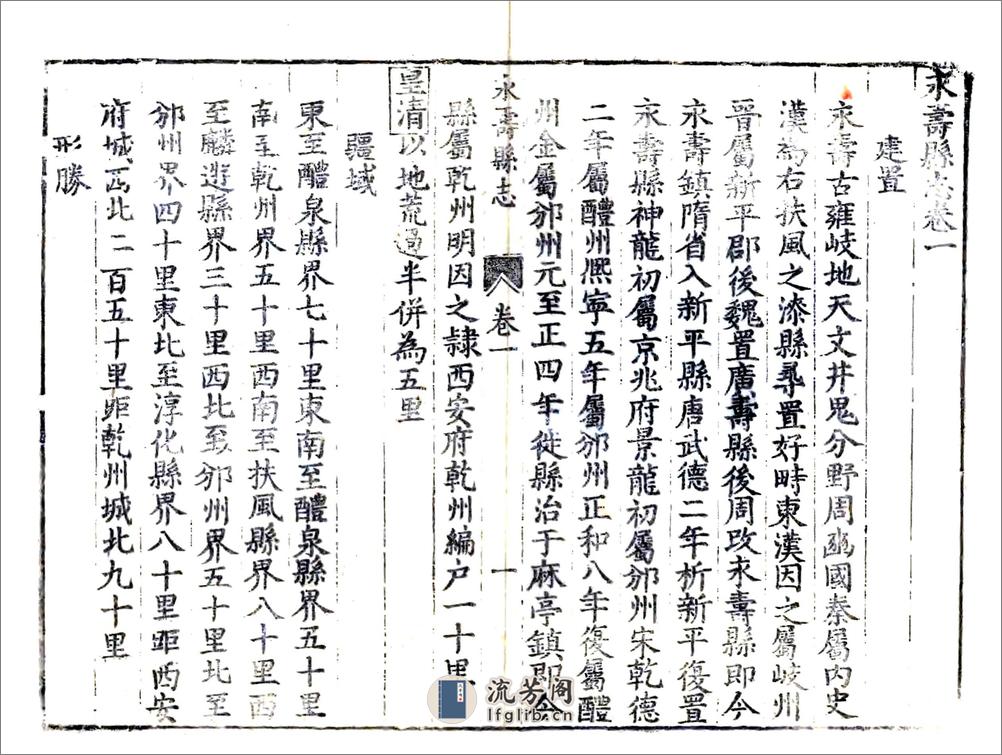 永壽縣志卷一
建置
永壽古雍岐地天文井鬼分野周豳國秦屬內史
漢為右扶風之漆縣尋置好畤東漢因之屬岐州
晉屬新平郡後魏置廣壽縣後周改永壽縣即今
永壽鎮隋省入新平縣唐武德二年析新平復置
永壽縣神龍初屬京兆府景龍初屬邠州宋乾德
二年屬醴州熈寧五年屬邠州正和八年復屬醴
州金屬邠州元至正四年徙縣治于麻亭鎮即今
縣屬乾州明因之隷西安府乾州編户一十里
皇清以地荒過半併為五里
永壽縣志 卷一 一
疆域
東至醴泉縣界七十里東南至醴泉縣界五十里
南至乾州界五十里西南至扶風縣界八十里西
至麟遊縣界三十里西北至邠州界五十里北至
邠州界四十里東北至淳化縣界八十里距西安
府城西北二百五十里距乾州城北九十里
形勝
流芳阁
lfglib.cn